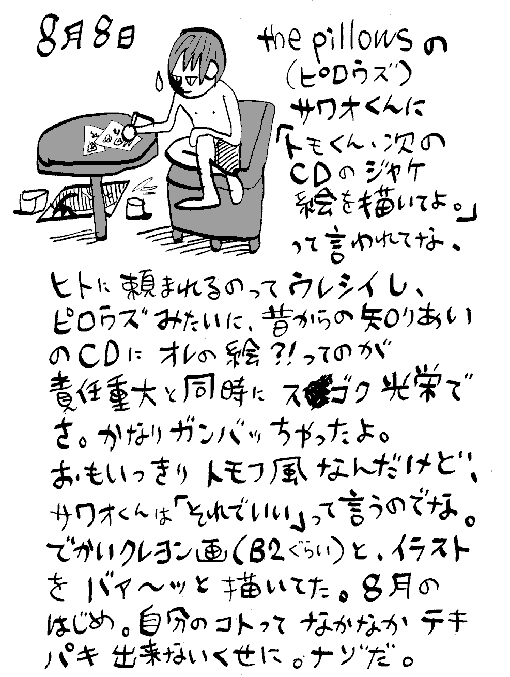 8月8日
the pillowsの
(ピロウズ)
サワオくんに
「トモくん、次の
CDのジャケ
絵を描いてよ。」
って言われてな、
ヒトに頼まれるのってウレシイし、
ピロウズみたいに、昔からの知りあい
のCDにオレの絵?!ってのが
責任重大と同時にスゴク光栄で
さ。かなりガンバッちゃったよ。
おもいっきりトモフ風なんだけど、
サワオくんは「それでいい」って言うのでな。
でかいクレヨン画(B2ぐらい)と、イラスト
をバァ〜ッと描いてた。8月の
はじめ。自分のコトってなかなかテキ
パキ出来ないくせに。ナゾだ。